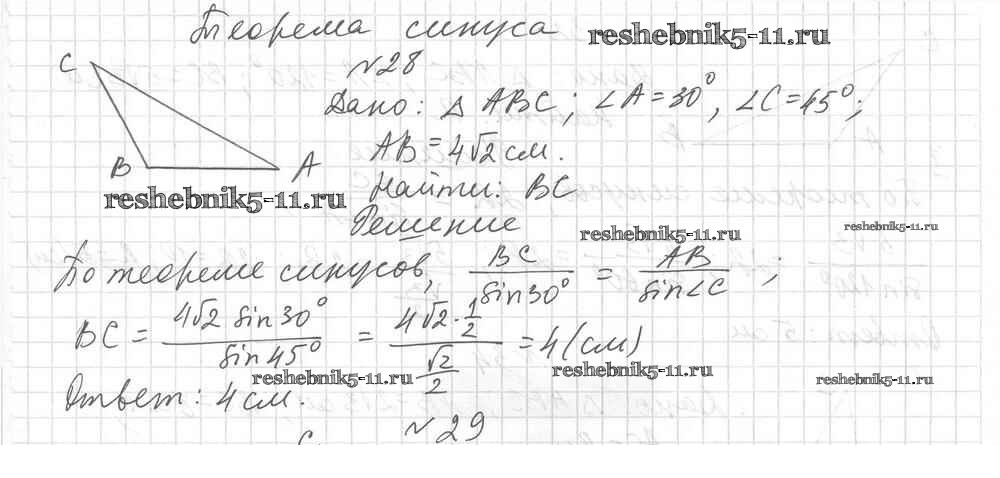 Теорема синуса reshebnik5-11.ru
C №28
Дано: △ ABC; ∠A=30°, ∠C=45°;
AB=4√2 см.
B A
reshebnik5-11.ru Найти: BC
Решение reshebnik5-11.ru reshebnik5-11.ru
По теореме синусов, BC/sin30° = AB/sin∠C ;
BC = 4√2 sin30°/sin45° = 4√2·1/2 / √2/2 = 4(см)
reshebnik5-11.ru reshebnik5-11.ru reshebnik5-11.ru
Ответ: 4 см.
№29